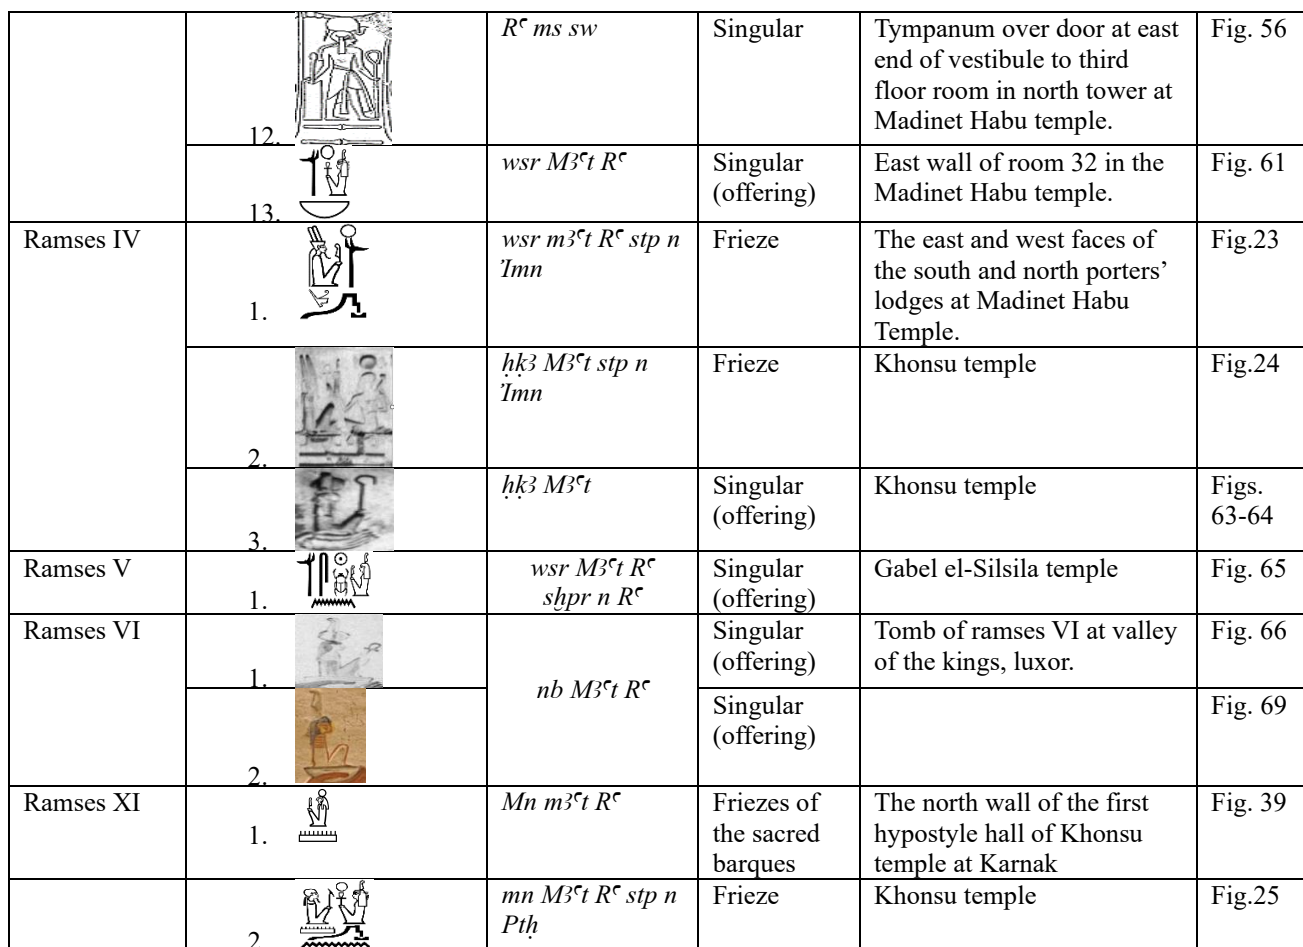 12.
Rꜥ ms sw
Singular
Tympanum over door at east
end of vestibule to third
floor room in north tower at
Madinet Habu temple.
Fig. 56
13.
wsr Mꜣꜥt Rꜥ
Singular
(offering)
East wall of room 32 in the
Madinet Habu temple.
Fig. 61
Ramses IV
1.
wsr mꜣꜥt Rꜥ stp n
ʾImn
Frieze
The east and west faces of
the south and north porters’
lodges at Madinet Habu
Temple.
Fig.23
2.
ḥḳꜣ Mꜣꜥt stp n
ʾImn
Frieze
Khonsu temple
Fig.24
3.
ḥḳꜣ Mꜣꜥt
Singular
(offering)
Khonsu temple
Figs.
63-64
Ramses V
1.
wsr Mꜣꜥt Rꜥ
sḫpr n Rꜥ
Singular
(offering)
Gabel el-Silsila temple
Fig. 65
Ramses VI
1.
nb Mꜣꜥt Rꜥ
Singular
(offering)
Tomb of ramses VI at valley
of the kings, luxor.
Fig. 66
2.
Singular
(offering)
Fig. 69
Ramses XI
1.
Mn mꜣꜥt Rꜥ
Friezes of
the sacred
barques
The north wall of the first
hypostyle hall of Khonsu
temple at Karnak
Fig. 39
2
mn Mꜣꜥt Rꜥ stp n
Ptḥ
Frieze
Khonsu temple
Fig.25